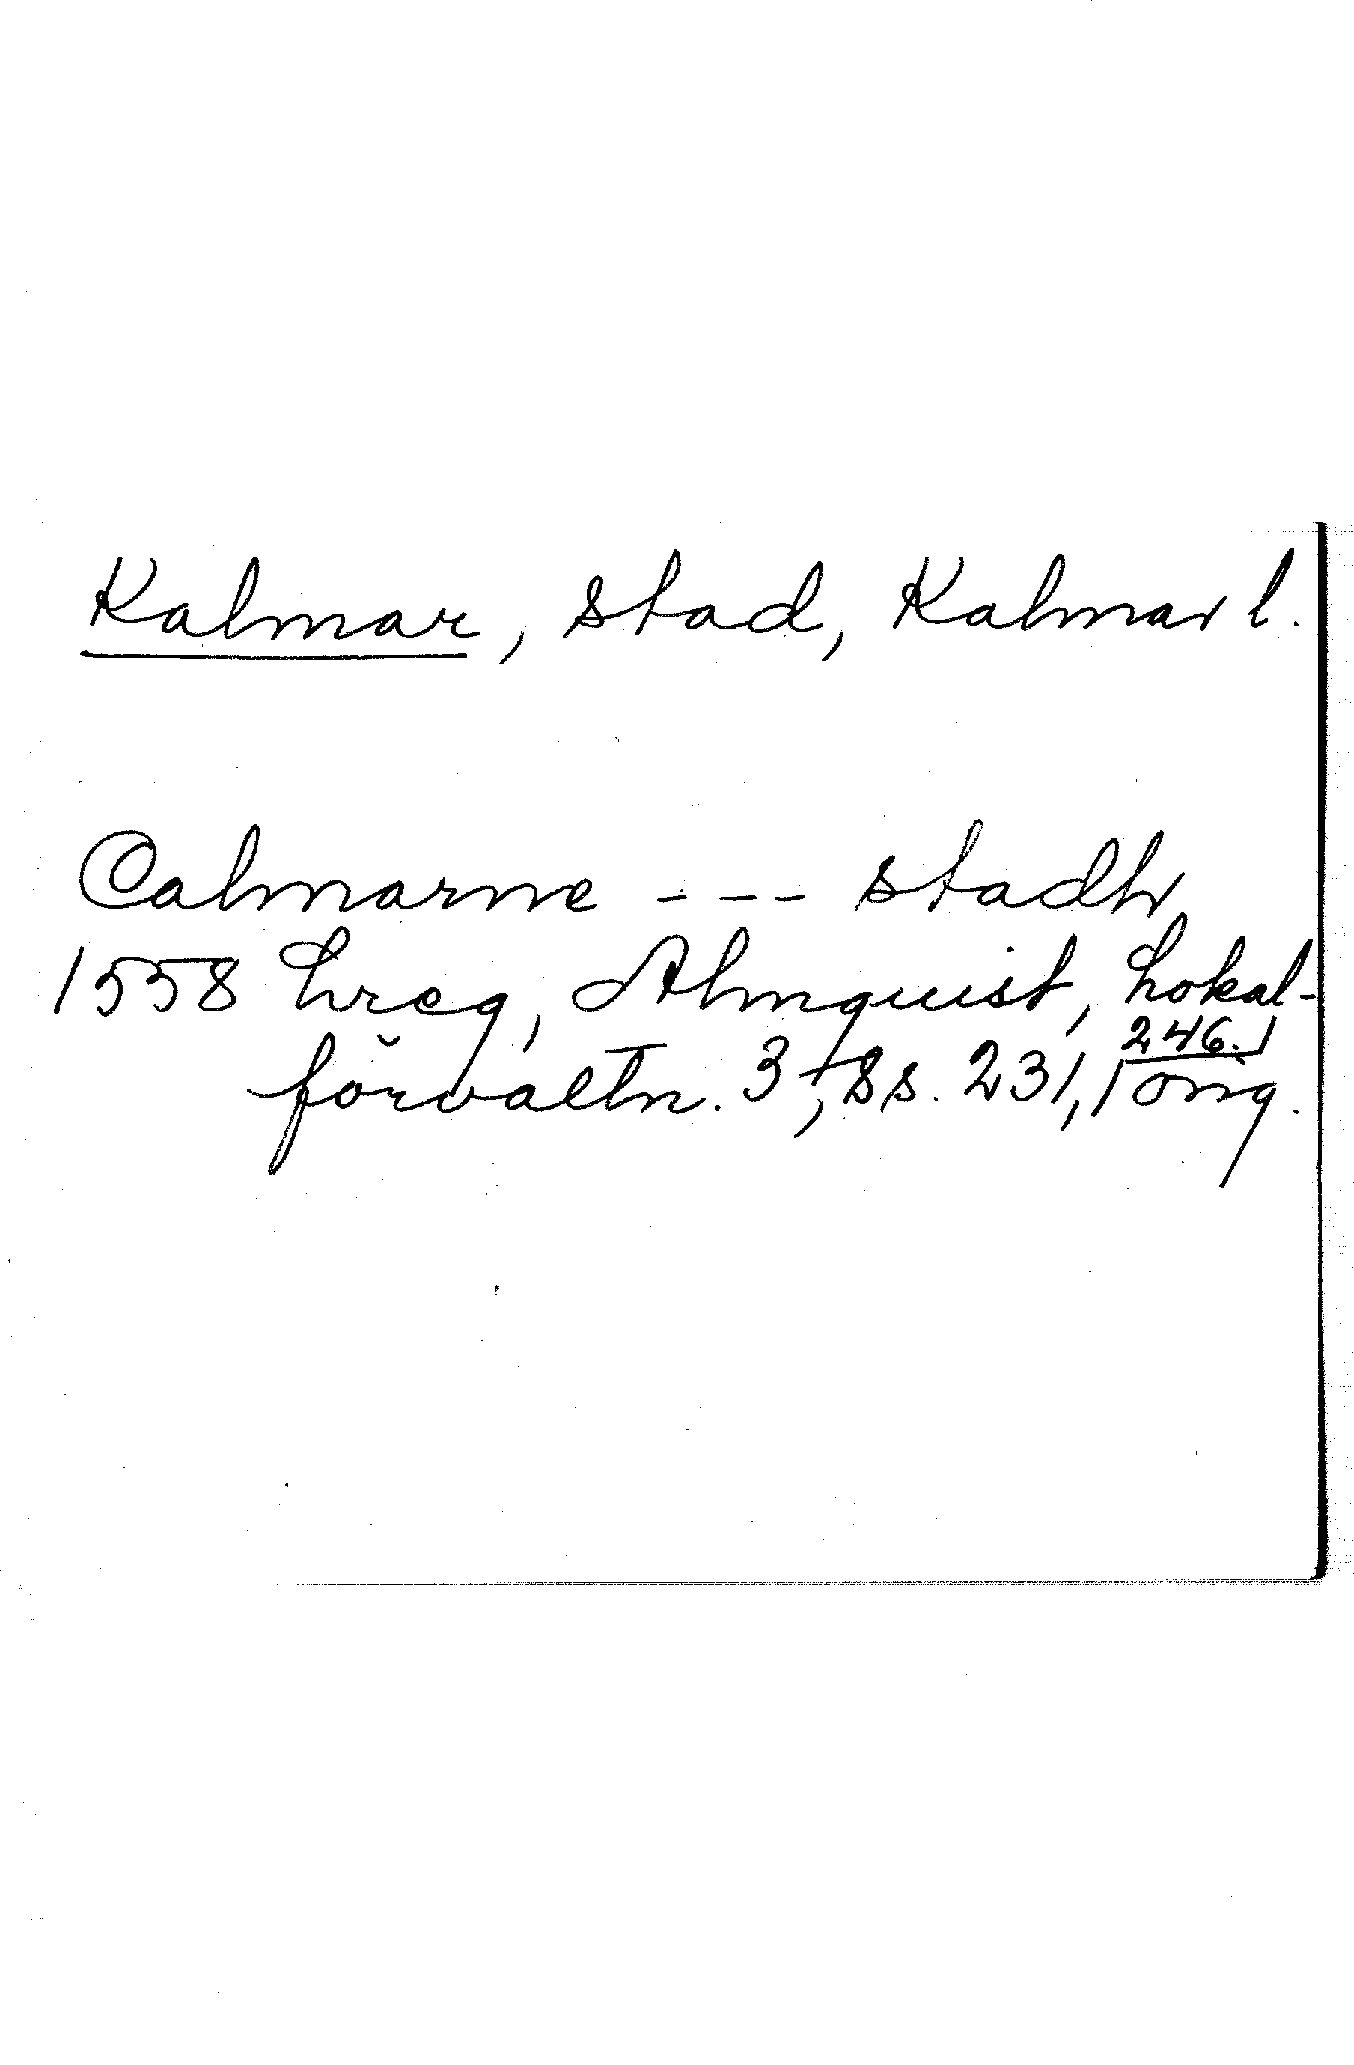 Kalmar, stad, Kalmar l.
Calmarne --- stadh
1558 Lreg, Almquist, Lokal-
förvaltn. 3, ss. 231, 246. orig.